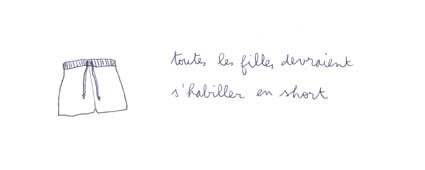 toutes les filles devraient
s'habiller en short